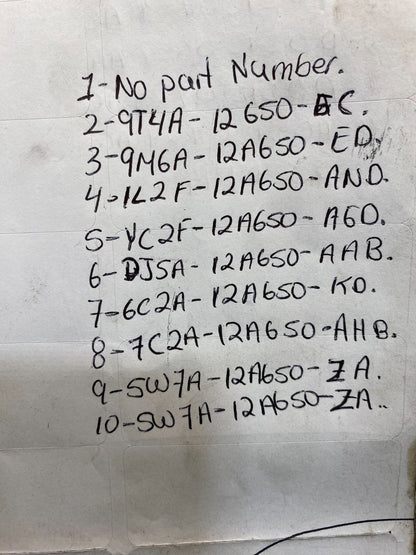 1-No part Number.
2-9T4A-12650-EC.
3-9M6A-12A650-ED.
4-1L2F-12A650-AND.
5-YC2F-12A650-AGD.
6-DJ5A-12A650-AAB.
7-6C2A-12A650-KD.
8-7C2A-12A650-AHB.
9-5W7A-12A650-ZA.
10-5W7A-12A650-ZA..